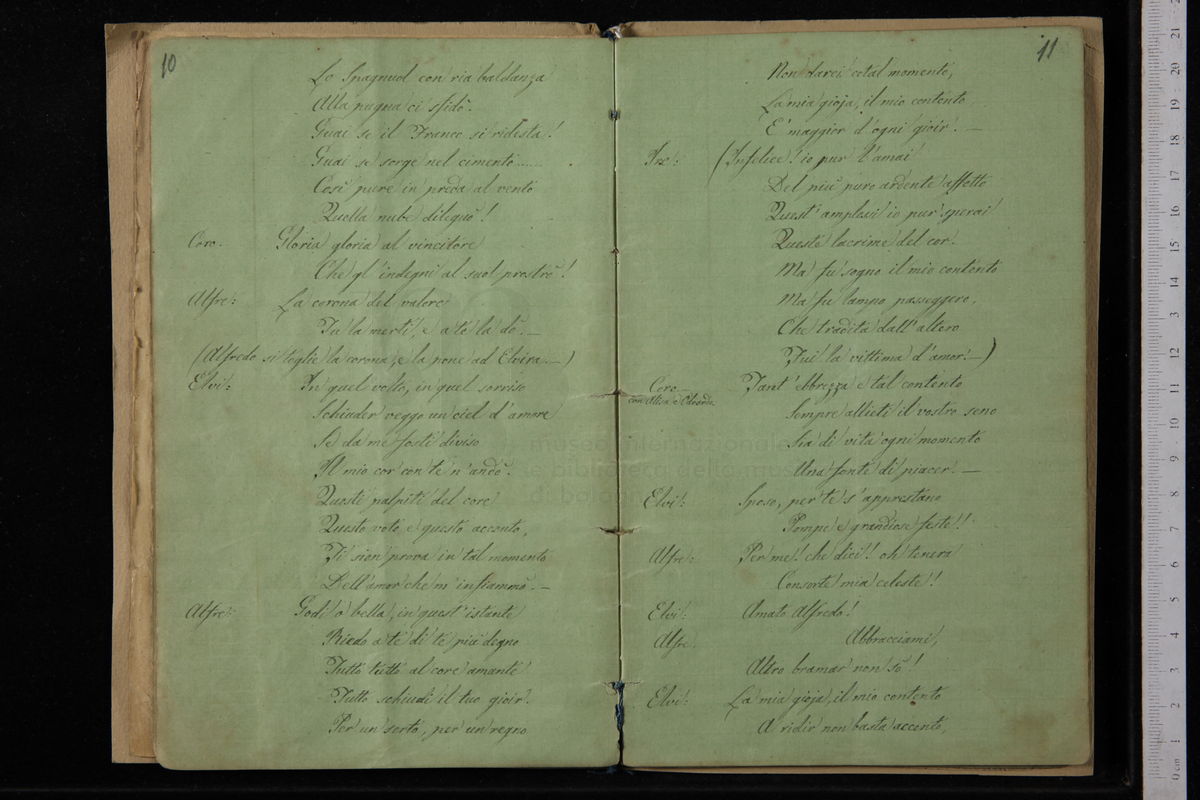 10
Lo Spagnuol con ria baldanza
Alla pugna ci sfidò.
Guai se il Franco si ridesta!
Guai se sorge nel cimento.....
Così pure in preda al vento
Quella nube dileguò!
Coro. Gloria gloria al vincitore
Che gl'indegni al suol prostrò!
Alfre: La corona del valore
Tu la merti, e a te la dò. —
(Alfredo si toglie la corona, e la pone ad Elvira. —)
Elvi: In quel volto, in quel sorriso
Schiuder veggo un ciel d'amore
Se da me fosti diviso
Il mio cor con te n'andò.
Questi palpiti del core
Questo voto e questo accento,
Ti sien prova in tal momento
Dell'amor che m'infiammò. —
Alfre: Godi o bella, in quest'istante
Riedo a te di te più degno
Tutto tutto al core amante
Tutto schiudi il tuo gioir.
Per un serto, per un regno
11
Non darei cotal momento,
La mia gioja, il mio contento
E' maggior d'ogni gioir. —
Ire: (Infelice! io pur l'amai
Del più puro ardente affetto
Quest'amplessi io pur sperai
Queste lacrime del cor.
Ma fu sogno il mio contento
Ma fu lampo passeggero,
Che tradita dall'altero
Fui la vittima d'amor. —)
Coro — Tant'ebbrezza e tal contento
con Alisa e Odoardo
Sempre allieti il vostro seno
Sia di vita ogni momento
Una fonte di piacer. —
Elvi: Sposo, per te s'apprestano
Pompe e grandiose feste!!
Alfre: Per me!! che dici!! oh tenera
Consorte mia celeste!!
Elvi: Amato Alfredo!
Alfre. Abbracciami,
Altro bramar non sò!
Elvi: La mia gioja, il mio contento
A ridir non basta accento,